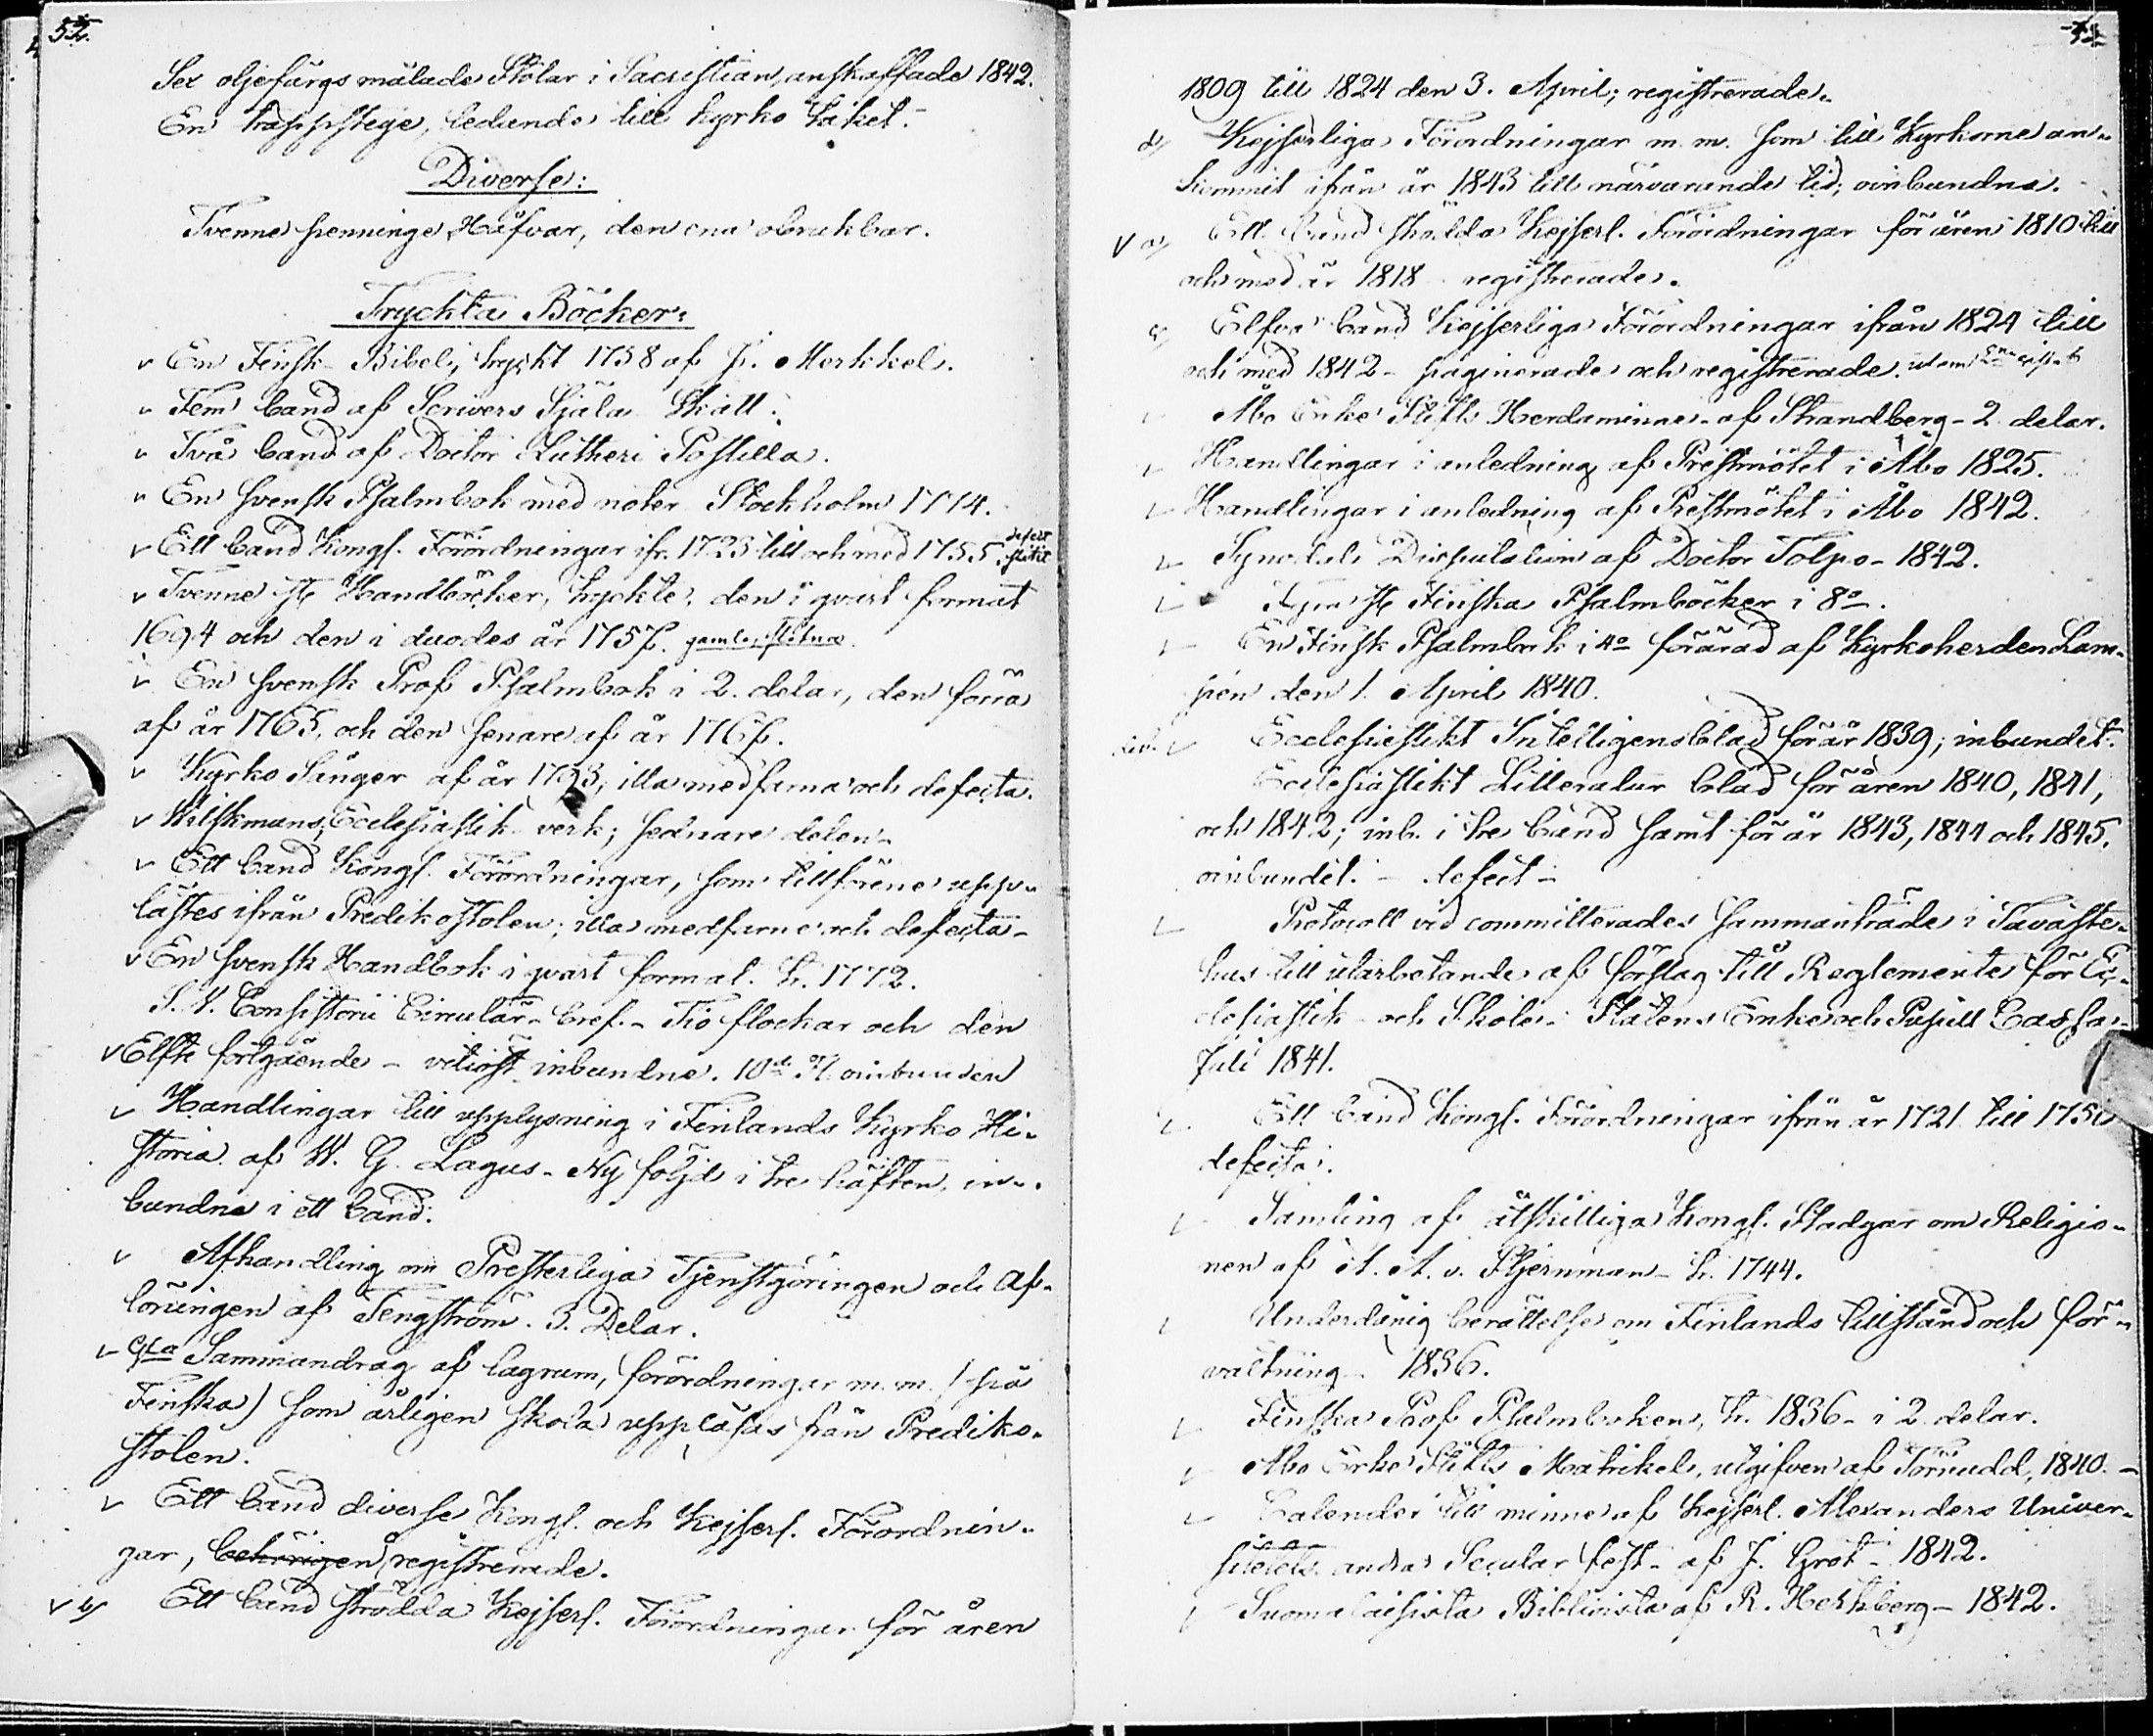 52.
Sex oljefärgs målade Stolar i Sacristian, anskaffade 1842.
En trappstege, ledande till Kyrko taket.
Diverse:
Tvenne penninge Håfvar, den ena obrukbar.
Tryckta Böcker:
En Finsk Bibel, tryckt 1758 af J. Merkkel.
Fem band af Scrivers Själa Skatt.
Två band af Doctor Lutheri Postilla.
En Svensk Psalmbok med noter Stockholm 1774.
Ett band Kongl. Förordningar ifr. 1723 till och med 1755. defect
Tvenne st Handböcker, tryckte, den i qvart format
1694 och den i duodes år 1757. gamla, slitna
En Svensk Prof Psalmbok i 2. delar, den förra
af år 1765, och den senare af år 1767.
Kyrko Sånger af år 1793; illa medfarna och defecta.
Wilskmans Ecclesiastik verk; sednare delen
Ett band Kongl. Förordningar, som tillförene upp-
lästes ifrån Predikostolen; illa medfarne och defecta
En Svensk Handbok i qvart format. tr. 1772.
S. V. Consistorii Circulär-bref. - Tio flockar och den
Elfte fortgående - inbundne. 10de oinbunden
Handlingar till upplysning i Finlands Kyrko Hi-
storia af W. G. Lagus - Ny följd i tre häften, in-
bundna i ett band.
Afhandling om Presterliga Tjenstgöringen och Af-
löningen af Tengström. 3. Delar.
Sammandrag af lagrum, förordningar m. m. (på
Finska) som årligen skola uppläsas från Prediko-
stolen.
Ett band diverse Kongl. och Kejserl. Förordnin-
gar, behörigen registrerade.
b) Ett band strödda Kejserl. Förordningar för åren
1809 till 1824 den 3. April; registrerade.
d) Kejserliga Förordningar m. m. som till Kyrkorne an-
kommit ifrån år 1843 till närvarande tid; oinbundna.
a) Ett band strödda Kejserl. Förordningar för åren 1810 till
och med år 1818 registrerade.
c) Elfva band Kejserliga Förordningar ifrån 1824 till
och med 1842 - paginerade och registrerade. utom
Åbo Erke Stifts Herdaminne - af Strandberg - 2. delar.
Handlingar i anledning af Prestmötet i Åbo 1825.
Handlingar i anledning af Prestmötet i Åbo 1842.
Synodals Disputation af Doctor Tolpo - 1842.
Fyra st Finska Psalmböcker i 8o.
En Finsk Psalmbok i 4o förärad af Kyrkoherden Lam-
pén den 1. April 1840.
Ecclesiastikt Intelligensblad för år 1839; inbundet.
Ecclesiastikt Litteratur blad för åren 1840, 1841,
och 1842; inb. i tre band samt för år 1843, 1844 och 1845.
oinbundet. - defect -
Protocoll vid committerades sammanträde i Tavaste-
hus till utarbetande af förslag till Reglemente för Ec-
clesiastik- och Skole-Statens Enke och Pupill Cassa -
Juli 1841.
Ett band Kongl. Förordningar ifrån år 1721 till 1750
defecta.
Samling af åtskilliga Kongl. Stadgar om Religio-
nen af A. A. v. Stjernman - tr. 1744.
Underdånig berättelse om Finlands tillstånd och för-
valtning - 1836.
Finska Prof Psalmboken, tr. 1836 - i 2. delar.
Åbo Erke Stifts Matrikel, utgifven af Törnudd, 1840. -
Calender till minne af Kejserl. Alexanders Univer-
sitetets andra Secular fest - af J. Grot - 1842.
Suomalaisista Biblioista af R. Hertzberg - 1842.